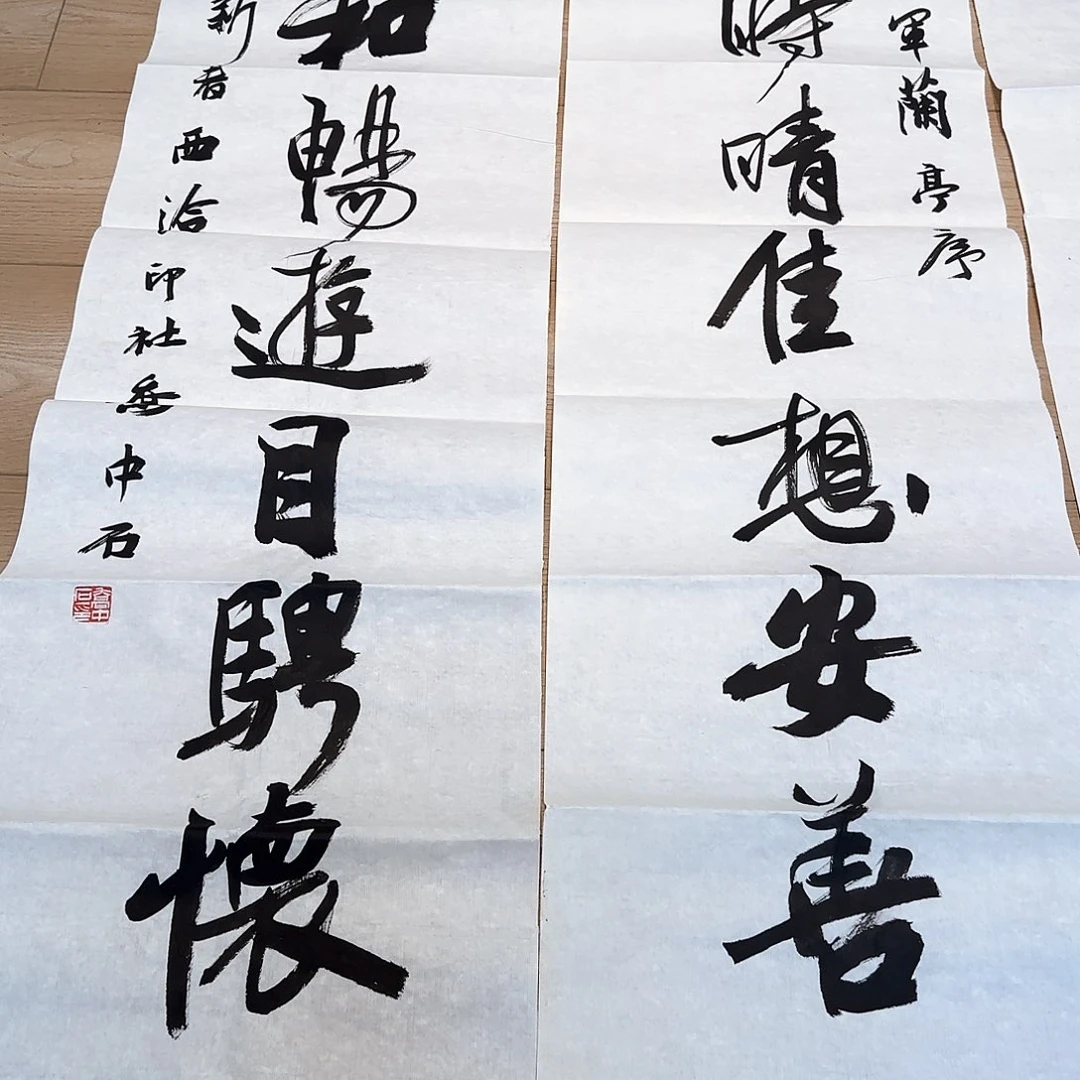 軍蘭亭序
時晴佳想安善
和暢遊目騁懷
新者西泠印社岳中石